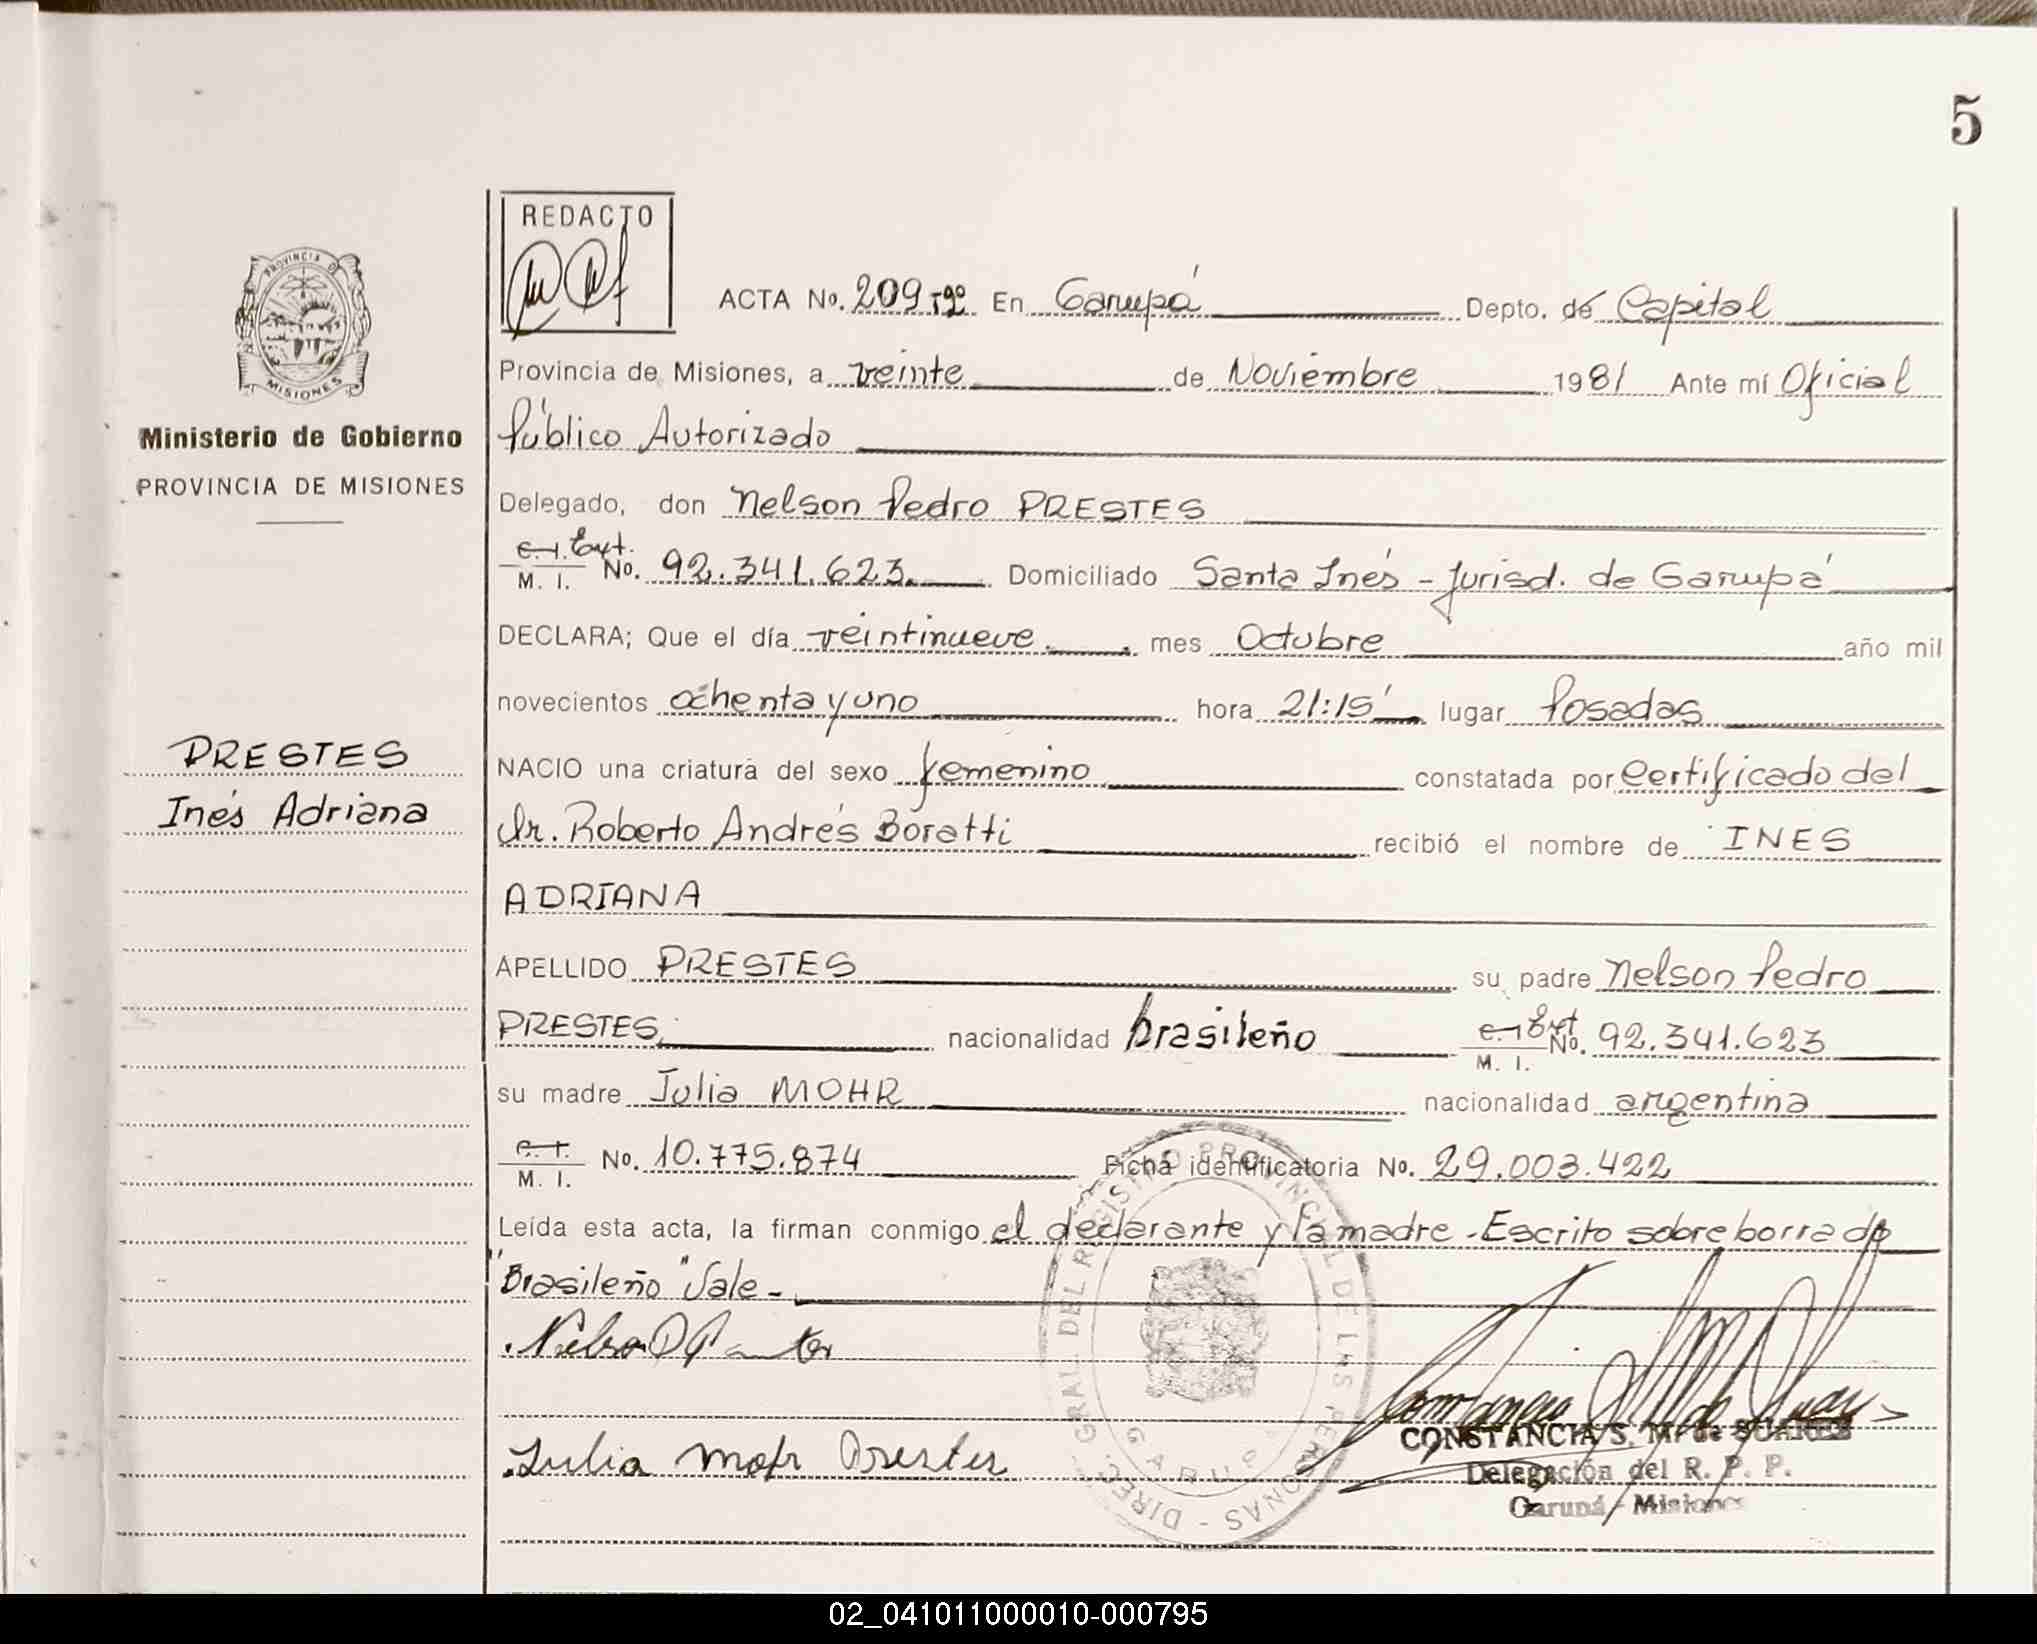 5
REDACTO
ACTA No. 209 Tº9º En Garupá Depto. de Capital
Provincia de Misiones, a veinte de Noviembre 1981 Ante mí Oficial
Público Autorizado
Delegado, don Nelson Pedro PRESTES
C. I. Ext.
M. I. No. 92.341.623. Domiciliado Santa Inés - Jurisd. de Garupá
DECLARA; Que el día veintinueve mes Octubre año mil
novecientos ochenta y uno hora 21:15' lugar Posadas
NACIO una criatura del sexo femenino constatada por Certificado del
Dr. Roberto Andrés Boratti recibió el nombre de INES
ADRIANA
APELLIDO PRESTES su padre Nelson Pedro
PRESTES nacionalidad brasileño C. I. Ext. No. 92.341.623
M. I.
su madre Julia MOHR nacionalidad argentina
C. I.
M. I. No. 10.775.874 Ficha identificatoria No. 29.003.422
Leída esta acta, la firman conmigo el declarante y la madre - Escrito sobre borrado
"Brasileño" Vale -
Julia Mohr Prestes
CONSTANCIA S. M. de SUAREZ
Delegación del R. P. P.
Garupá - Misiones
DIREC. GRAL. DEL REGISTRO PROVINCIAL DE LAS PERSONAS -
GARUPA
PROVINCIA DE
MISIONES
Ministerio de Gobierno
PROVINCIA DE MISIONES
PRESTES
Inés Adriana
02_041011000010-000795